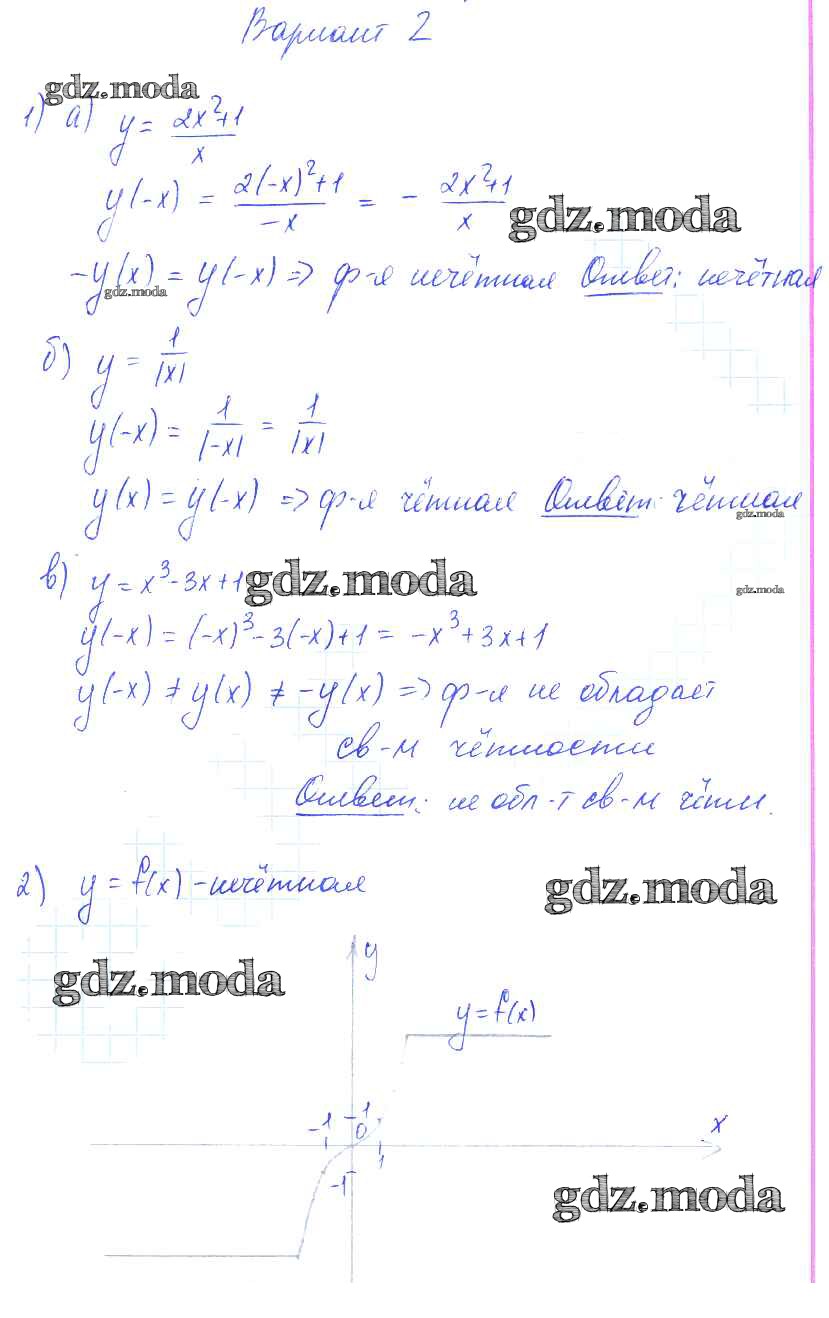 Вариант 2
gdz.moda
1) а) y = (2x²+1)/x
y(-x) = (2(-x)²+1)/(-x) = - (2x²+1)/x
gdz.moda
-y(x) = y(-x) => ф-я нечётная Ответ: нечётная
gdz.moda
б) y = 1/|x|
y(-x) = 1/|-x| = 1/|x|
y(x) = y(-x) => ф-я чётная Ответ: чётная
gdz.moda
в) y = x³-3x+1 gdz.moda
gdz.moda
y(-x) = (-x)³-3(-x)+1 = -x³+3x+1
y(-x) ≠ y(x) ≠ -y(x) => ф-я не обладает
св-м чётности
Ответ: не обл-т св-м чётн.
2) y = f(x) - нечётная
gdz.moda
gdz.moda
y
y = f(x)
-1 1 0 x
1
-1
gdz.moda